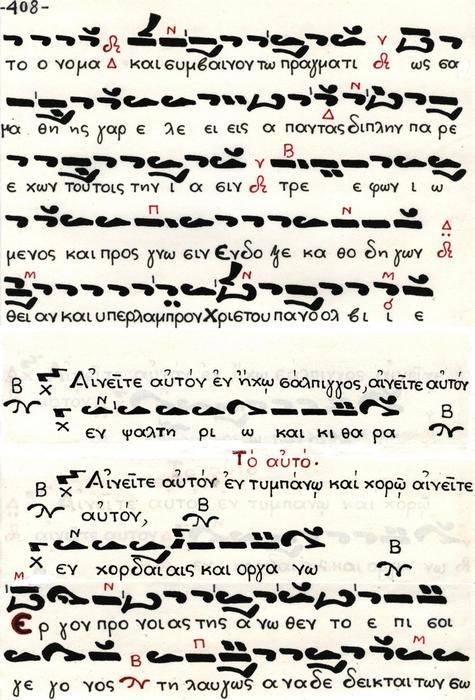 -408-
το ο νομα Δ και συμβαινον τω πραγματι ως σα
μα θη ης γαρ ε λε ει εις α παντας διπλην πα ρε
ε χων τουτοις την ι α σιν τρε ε φων ι ω
μενος και προς γνω σιν Ενδο ξε κα θο δη γων
θει αν και υπερλαμπρον Χριστου πανο ολ βι ι ε
Αἰνεῖτε αὐτόν ἐν ἤχω σαλπιγγος, αἰνεῖτε αὐτόν
εν ψαλτη ρι ω και κι θα ρα
Τό αὐτό.
Αἰνεῖτε αὐτόν ἐν τυμπάνῳ καί χορῷ αἰνεῖτε
αὐτόν,
εν χορδαι αις και οργα νω
Ερ γον προ νοι ας της α νω θεν το ε πι σοι
γε γο νος τη λαυγως α ναδε δεικται των σω